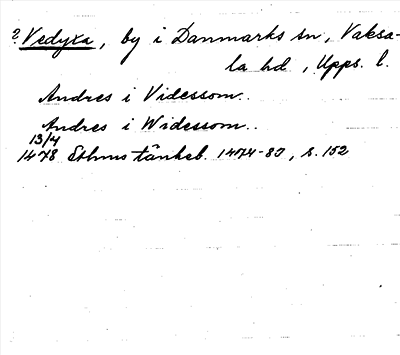 ? Vedyxa, by i Danmarks sn, Vaksa-
la hd, Upps. l.
Andres i Videssom..
Andres i Widessom..
13/4
1478 Sthms tänkeb. 1474-80, s. 152